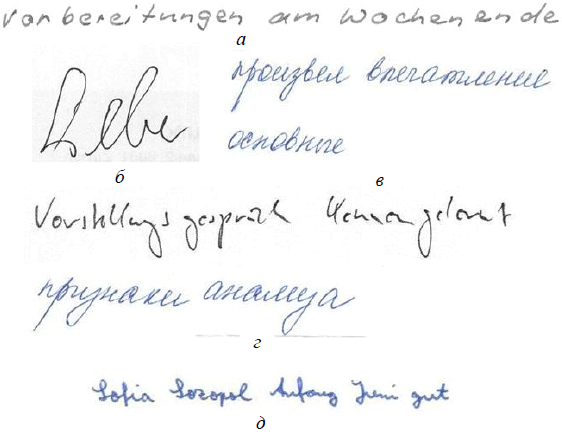 Vorbereitungen am Wochenende
а
произвел впечатление
основные
б
в
Vorstellungsgespräch kennengelernt
признаки анализа
г
Sofia Sozopol Anfang Juni gut
д